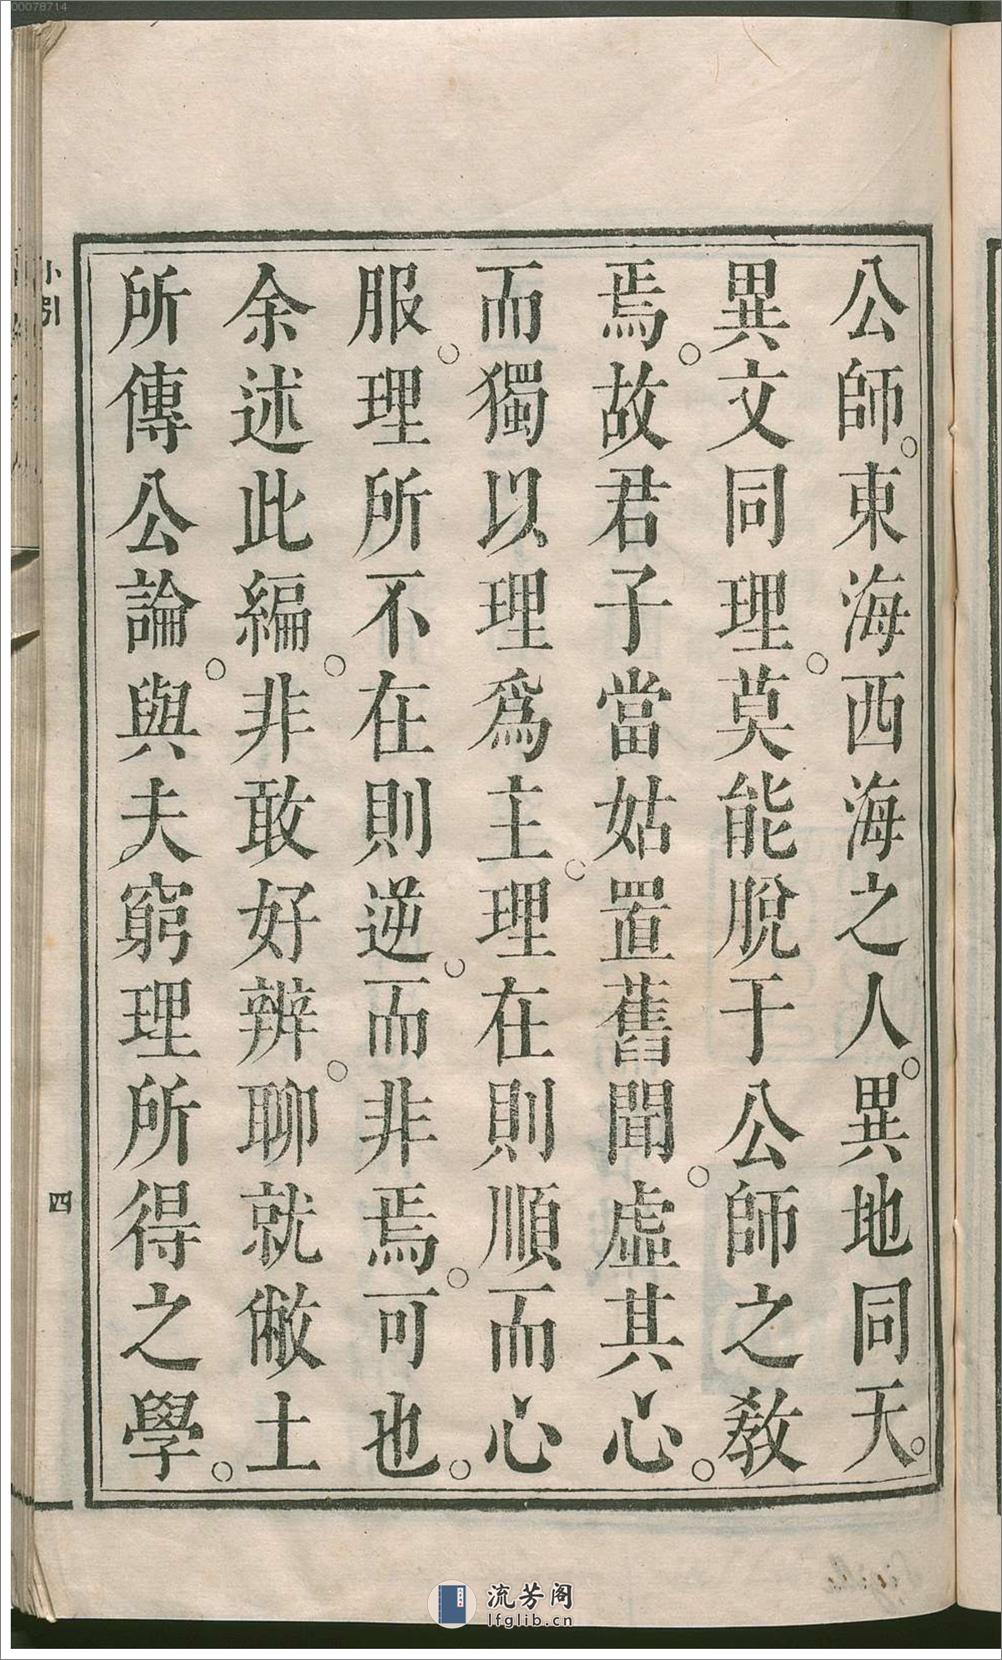 公師。東海西海之人。異地同天。
異文同理。莫能脫于公師之教
焉。故君子當姑置舊聞。虛其心。
而獨以理爲主。理在則順而心
服。理所不在則逆。而非焉。可也。
余述此編。非敢好辨。聊就敝土
所傳公論。與夫窮理所得之學。
小引
四
00078714
流芳阁
lfglib.cn